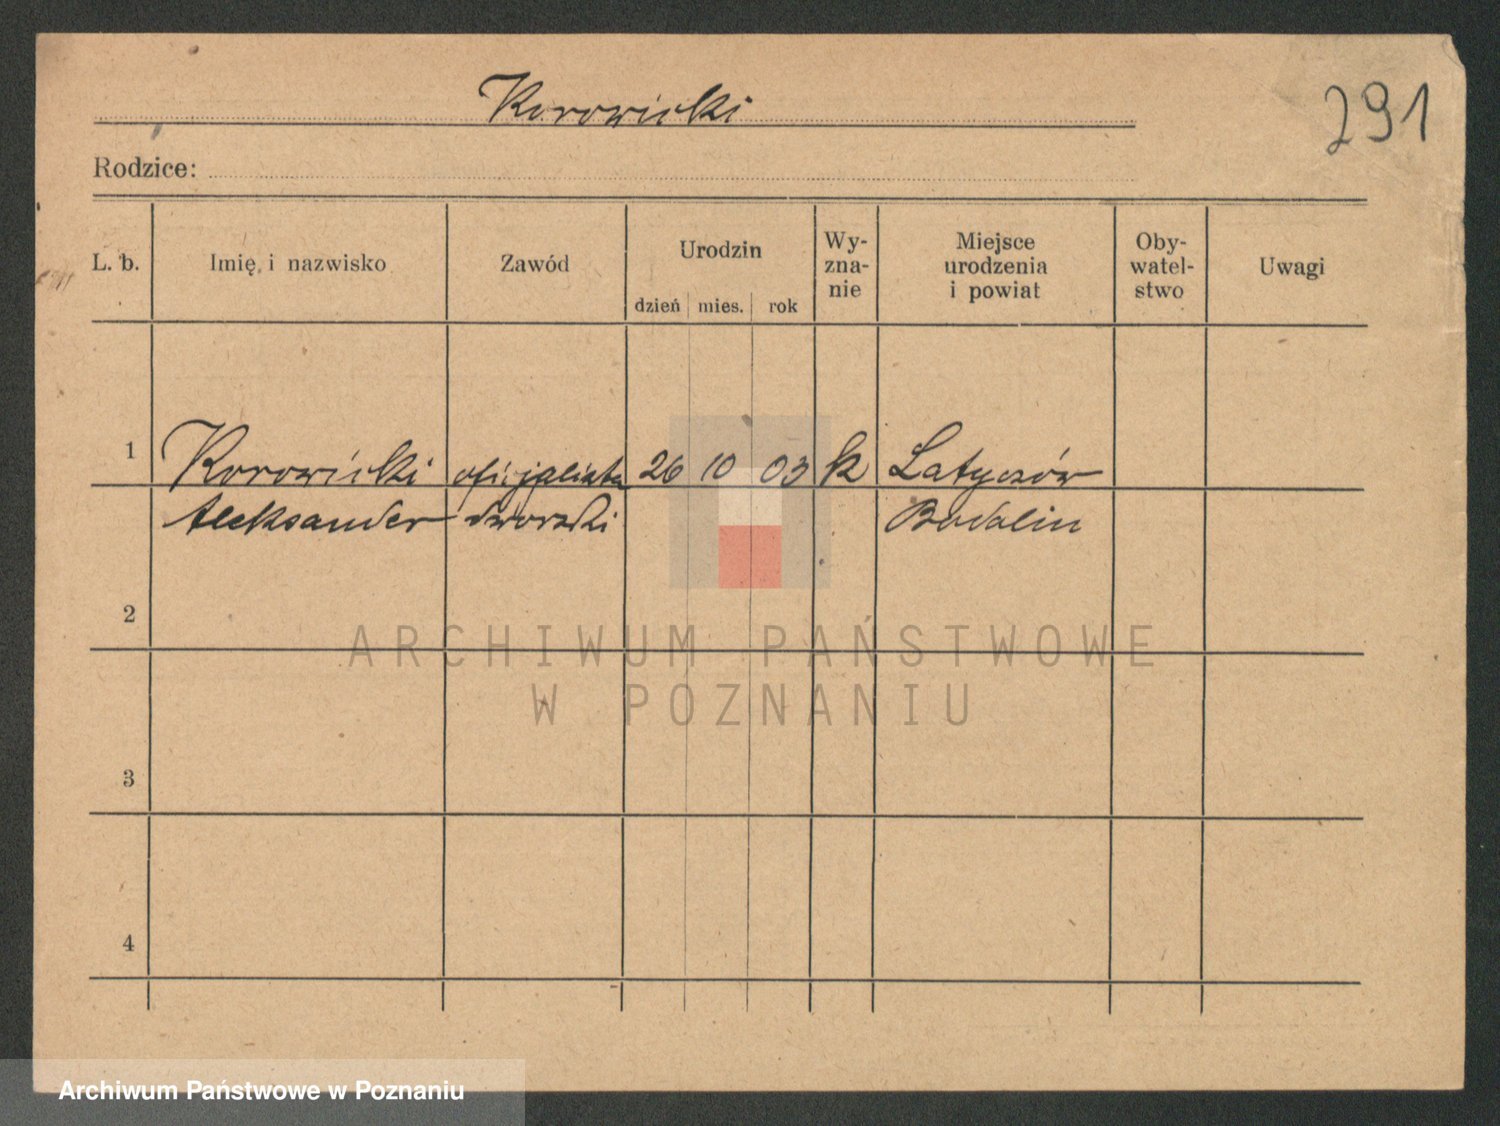 Korowicki
291
Rodzice:
L. b.
Imię i nazwisko
Zawód
Urodzin
dzień mies. rok
Wy-
zna-
nie
Miejsce
urodzenia
i powiat
Oby-
watel-
stwo
Uwagi
1 Korowicki oficjalista 26 10 03 k Latyczów
Aleksander dworski
2
3
4
ARCHIWUM PAŃSTWOWE
W POZNANIU
Archiwum Państwowe w Poznaniu